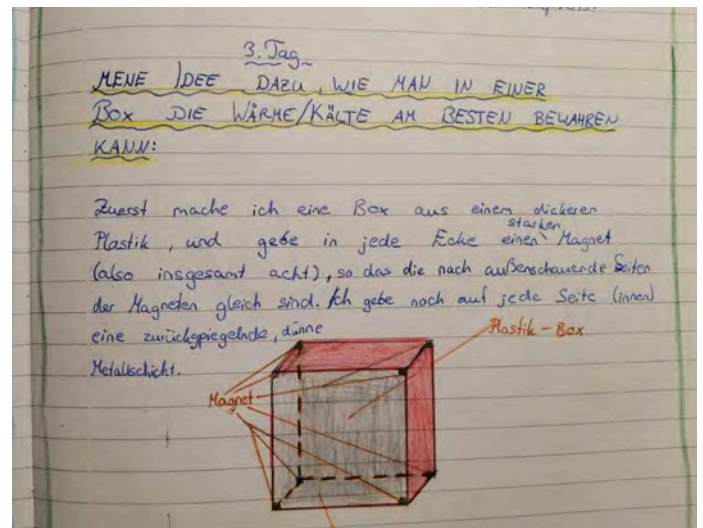 3. Tag
MENE IDEE DAZU, WIE MAN IN EINER
BOX DIE WÄRME/KÄLTE AM BESTEN BEWAHREN
KANN:
Zuerst mache ich eine Box aus einem dickeren
starken
Plastik, und gebe in jede Ecke einen Magnet
(also insgesamt acht), so das die nach außenschauende Seiten
der Magneten gleich sind. Ich gebe noch auf jede Seite (innen)
eine zurückgpiegelnde, dünne
Metallschicht.
Plastik-Box
Magnet